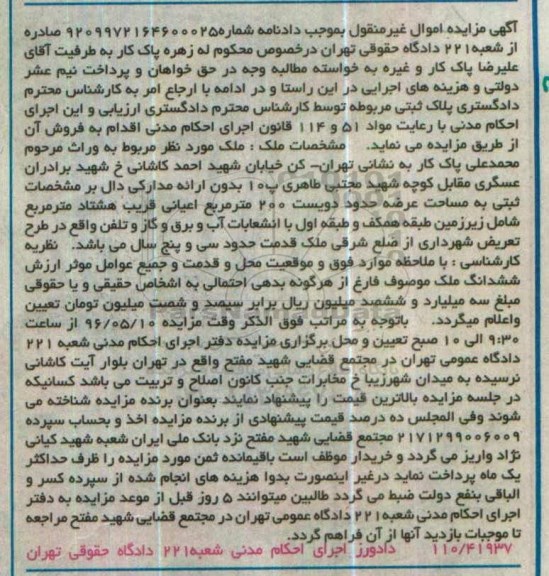 آگهی مزایده اموال غیرمنقول بموجب دادنامه شماره۹۲۰۹۹۷۲۱۶۴۶۰۰۰۲۵ صادره
از شعبه۲۲۱ دادگاه حقوقی تهران درخصوص محکوم له زهره پاک کار به طرفیت آقای
علیرضا پاک کار و غیره به خواسته مطالبه وجه در حق خواهان و پرداخت نیم عشر
دولتی و هزینه های اجرایی در این راستا و در ادامه با ارجاع امر به کارشناس محترم
دادگستری پلاک ثبتی مربوطه توسط کارشناس محترم دادگستری ارزیابی و این اجرای
احکام مدنی با رعایت مواد ۵۱ و ۱۱۴ قانون اجرای احکام مدنی اقدام به فروش آن
از طریق مزایده می نماید. مشخصات ملک : ملک مورد نظر مربوط به وراث مرحوم
محمدعلی پاک کار به نشانی تهران- کن خیابان شهید احمد کاشانی خ شهید برادران
عسگری مقابل کوچه شهید مجتبی طاهری پ۱۰ بدون ارائه مدارکی دال بر مشخصات
ثبتی به مساحت عرصه حدود دویست ۲۰۰ مترمربع اعیانی قریب هشتاد مترمربع
شامل زیرزمین طبقه همکف و طبقه اول با انشعابات آب و برق و گاز و تلفن واقع در طرح
تعریض شهرداری از ضلع شرقی ملک قدمت حدود سی و پنج سال می باشد. نظریه
کارشناسی : با ملاحظه موارد فوق و موقعیت محل و قدمت و جمیع عوامل موثر ارزش
ششدانگ ملک موصوف فارغ از هرگونه بدهی احتمالی به اشخاص حقیقی و یا حقوقی
مبلغ سه میلیارد و ششصد میلیون ریال برابر سیصد و شصت میلیون تومان تعیین
واعلام میگردد. باتوجه به مراتب فوق الذکر وقت مزایده ۹۶/۰۵/۱۰ از ساعت
۹:۳۰ الی ۱۰ صبح تعیین و محل برگزاری مزایده دفتر اجرای احکام مدنی شعبه ۲۲۱
دادگاه عمومی تهران در مجتمع قضایی شهید مفتح واقع در تهران بلوار آیت کاشانی
نرسیده به میدان شهرزیبا خ مخابرات جنب کانون اصلاح و تربیت می باشد کسانیکه
در جلسه مزایده بالاترین قیمت را پیشنهاد نمایند بعنوان برنده مزایده شناخته می
شوند وفی المجلس ده درصد قیمت پیشنهادی از برنده مزایده اخذ و بحساب سپرده
۲۱۷۱۲۹۹۰۰۶۰۰۹ مجتمع قضایی شهید مفتح نزد بانک ملی ایران شعبه شهید کیانی
نژاد واریز می گردد و خریدار موظف است باقیمانده ثمن مورد مزایده را ظرف حداکثر
یک ماه پرداخت نماید درغیر اینصورت بدوا هزینه های انجام شده از سپرده کسر و
الباقی بنفع دولت ضبط می گردد طالبین میتوانند ۵ روز قبل از موعد مزایده به دفتر
اجرای احکام مدنی شعبه ۲۲۱ دادگاه عمومی تهران در مجتمع قضایی شهید مفتح مراجعه
تا موجبات بازدید آنها از آن فراهم گردد.
۱۱۰/۴۱۹۳۷ دادورز اجرای احکام مدنی شعبه۲۲۱ دادگاه حقوقی تهران